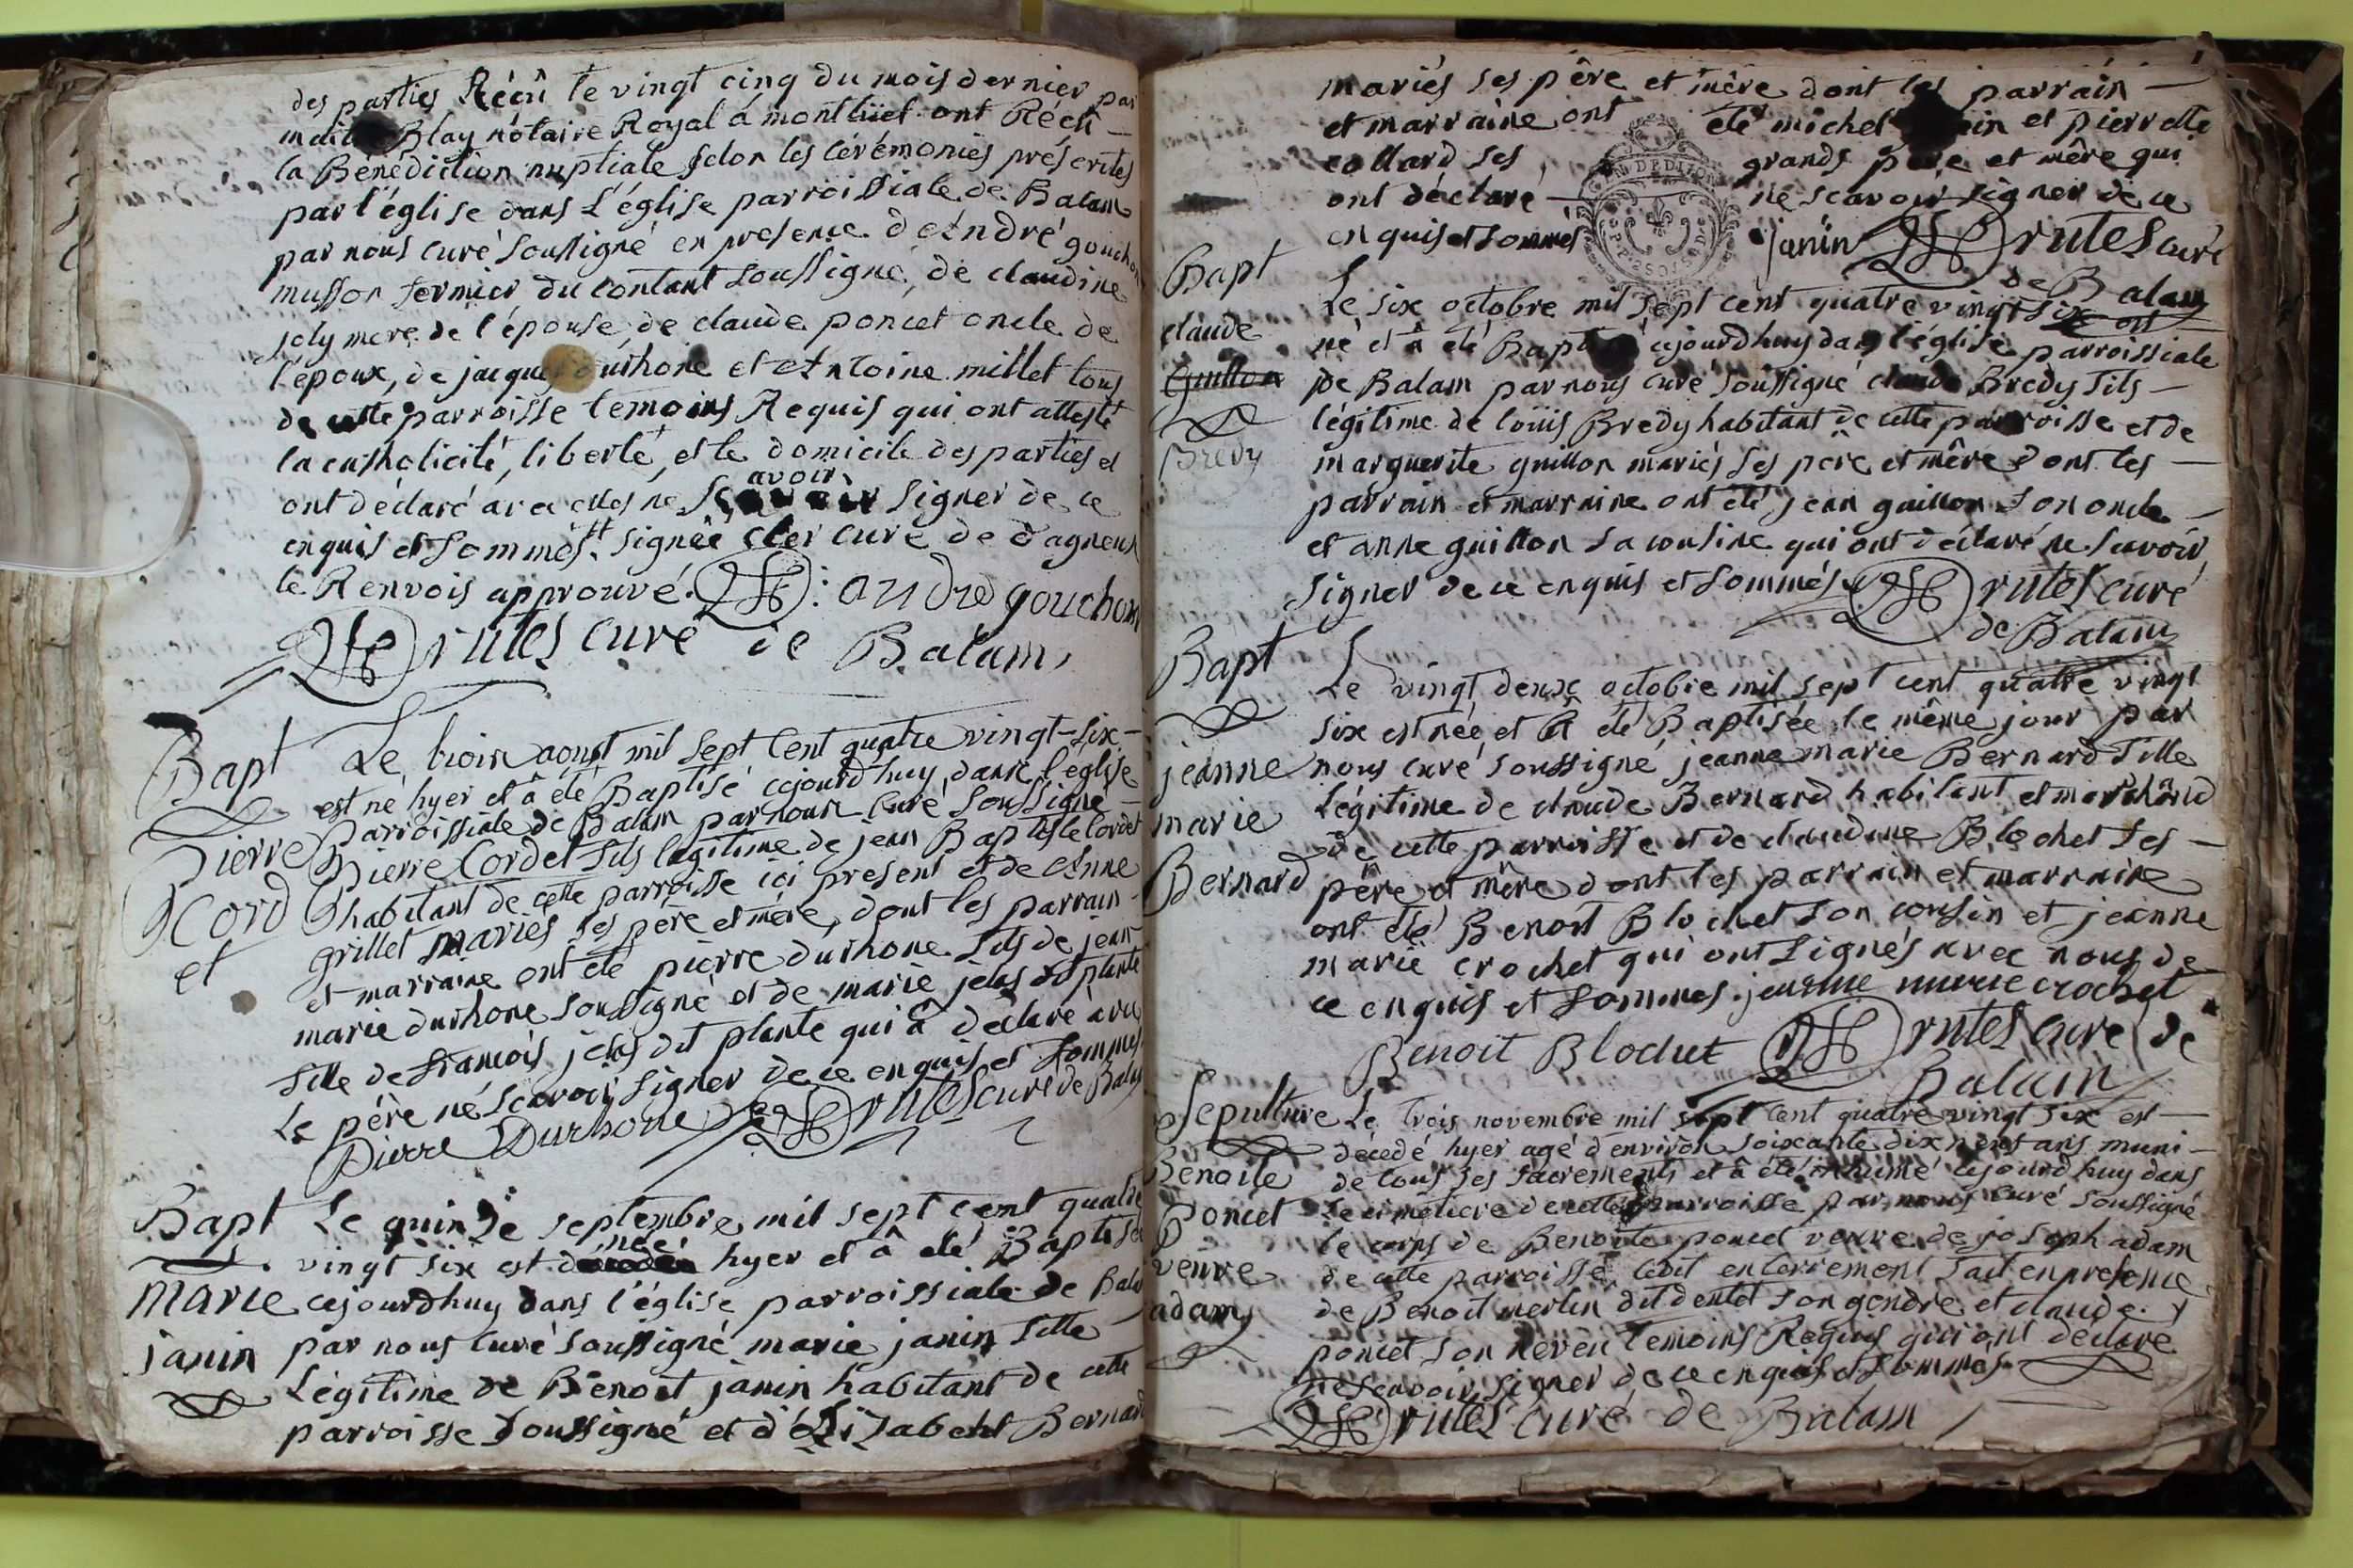 des parties Récû le vingt cinq du mois dernier par
Blay notaire Royal à montlüel ont Récû
la Bénédiction nuptiale selon les cérémonies préscrites
par l'église dans L'église parroissiale de Balam
par nous curé soussigné en presence d'André gouchon
musson fermier du contant soussigné, de claudine
joly mere de l'épouse, de claude poncet oncle de
l'époux, de jacques durhone et Antoine millet tous
de cette parroisse temoins Requis qui ont attesté
la catholicité, liberté, et le domicile des parties et
avoir
ont déclaré avec elles ne sçavoir signer de ce
enquis et sommés. signée cler curé de dagneux
le Renvois approuvé. andre gouchon
rutes curé de Balam,
Bapt
Pierre
Cord
et
Le trois aoust mil sept cent quatre vingt-six
est né hyer et â été Baptisé cejourdhuy dans l'eglise
parroissiale de Balam par nous curé soussigné
pierre Cordet fils légitime de jean Baptiste Cordet
habitant de cette parroisse ici present et de Anne
grillet mariés ses père et mère, dont les parrain
et marraine ont été pierre durhone fils de jean
marie durhone soussigné et de marie jelas dit plante
fille de francois jelas dit plante qui â déclaré avec
Le père né sçavoir signer de ce enquis et sommés
Pierre Durhone rutes curé de Balam
Bapt
marie
janin
Le quinze septembre mil sept cent quatre
née
vingt six est hyer et â été Baptisée
cejourdhuy dans l'église parroissiale de Balam
par nous curé soussigné marie janin fille
Légitime de Bénoit janin habitant de cette
parroisse soussigné et d'élizabeht Bernard
mariés ses père et mère dont les parrain
et marraine ont été michel et pierrette
collard ses grands père et mère qui
ont déclaré né scavoir signer de ce
enquis et sommés janin rutes curé
de Balam
Bapt
claude
Guillon
Bredy
Le six octobre mil sept cent quatre vingt six est
né et â été Baptisé cejourdhuy dans l'église parroissiale
de Balam par nous curé soussigné claude Bredy fils
légitime de loüis Bredy habitant de cette parroisse et de
marguerite guillon mariés ses père et mère dont les
parrain et marraine ont été jean guillon son oncle
et anne guillon sa cousine qui ont déclaré ne scavoir
signer de ce enquis et sommés rutes curé
de Balam
Bapt
jeanne
marie
Bernard
Le vingt deux octobre mil sept cent quatre vingt
six est née et â été Baptisée le même jour par
nous curé soussigné jeanne marie Bernard fille
Légitime de claude Bernard habitant et marchand
de cette parroisse et de claudine Blochet ses
père et mère dont les parrain et marraine
ont été Benoit Blochet son cousin et jeanne
marie crochet qui ont signés avec nous de
ce enquis et sommés. jeanne marie crochet
Benoit Blochet rutes curé de
Balam
Sepulture
Benoite
Poncet
veuve
adam
Le trois novembre mil sept cent quatre vingt six est
décédé hyer agé d'environ soixante dix neuf ans muni
de tous ses sacrements et â été inhumé cejourdhuy dans
le cimetiere de cette parroisse par nous curé soussigné
le corps de Benoite poncet veuve de joseph adam
de cette parroisse, ledit enterrement fait en presence
de Benoit merlin dit dentet son gendre et claude
poncet son neveu temoins Requis qui ont déclaré
ne scavoir signer de ce enquis et sommés
rutes curé de Balam